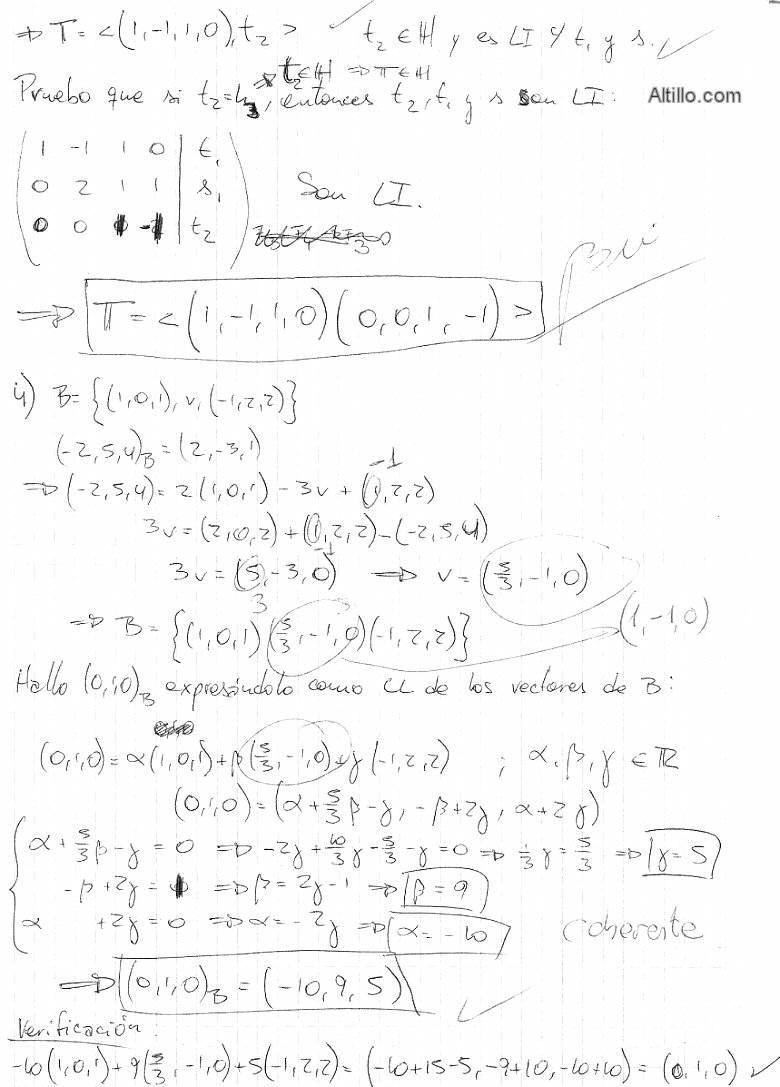 ⇒ T = <(1,-1,1,0), t₂> ✓ t₂ ∈ H y es LI c/ t₁ y s. ✓
⇒ t₂ ∈ H ⇒ T ∈ H
Pruebo que si t₂ = h₃, entonces t₂, t₁ y s son LI:
Altillo.com
1 -1 1 0 | t₁
0 2 1 1 | s₁
0 0 1 -1 | t₂
Son LI.
⇒ T = <(1,-1,1,0)(0,0,1,-1)>
4) B = {(1,0,1), v, (-1,2,2)}
(-2,5,4)_B = (2,-3,1)
-1
⇒ (-2,5,4) = 2(1,0,1) - 3v + (1,2,2)
3v = (2,0,2) + (1,2,2) - (-2,5,4)
-1
3v = (5,-3,0) ⇒ v = (5/3, -1, 0)
3
⇒ B = {(1,0,1)(5/3,-1,0)(-1,2,2)}
(1,-1,0)
Hallo (0,1,0)_B expresándolo como CL de los vectores de B:
(0,1,0) = α(1,0,1) + β(5/3,-1,0) + γ(-1,2,2) ; α, β, γ ∈ ℝ
(0,1,0) = (α + 5/3 β - γ, -β + 2γ, α + 2γ)
α + 5/3 β - γ = 0 ⇒ -2γ + 10/3 γ - 5/3 - γ = 0 ⇒ 1/3 γ = 5/3 ⇒ γ = 5
-β + 2γ = 1 ⇒ β = 2γ - 1 ⇒ β = 9
α + 2γ = 0 ⇒ α = -2γ ⇒ α = -10
coherente
⇒ (0,1,0)_B = (-10, 9, 5) ✓
Verificación:
-10(1,0,1) + 9(5/3,-1,0) + 5(-1,2,2) = (-10+15-5, -9+10, -10+10) = (0,1,0) ✓